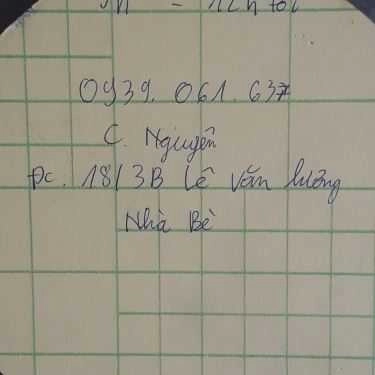 12h tối
0939. 061. 637
C. Nguyên
ĐC. 18/3B Lê Văn Lương
Nhà Bè